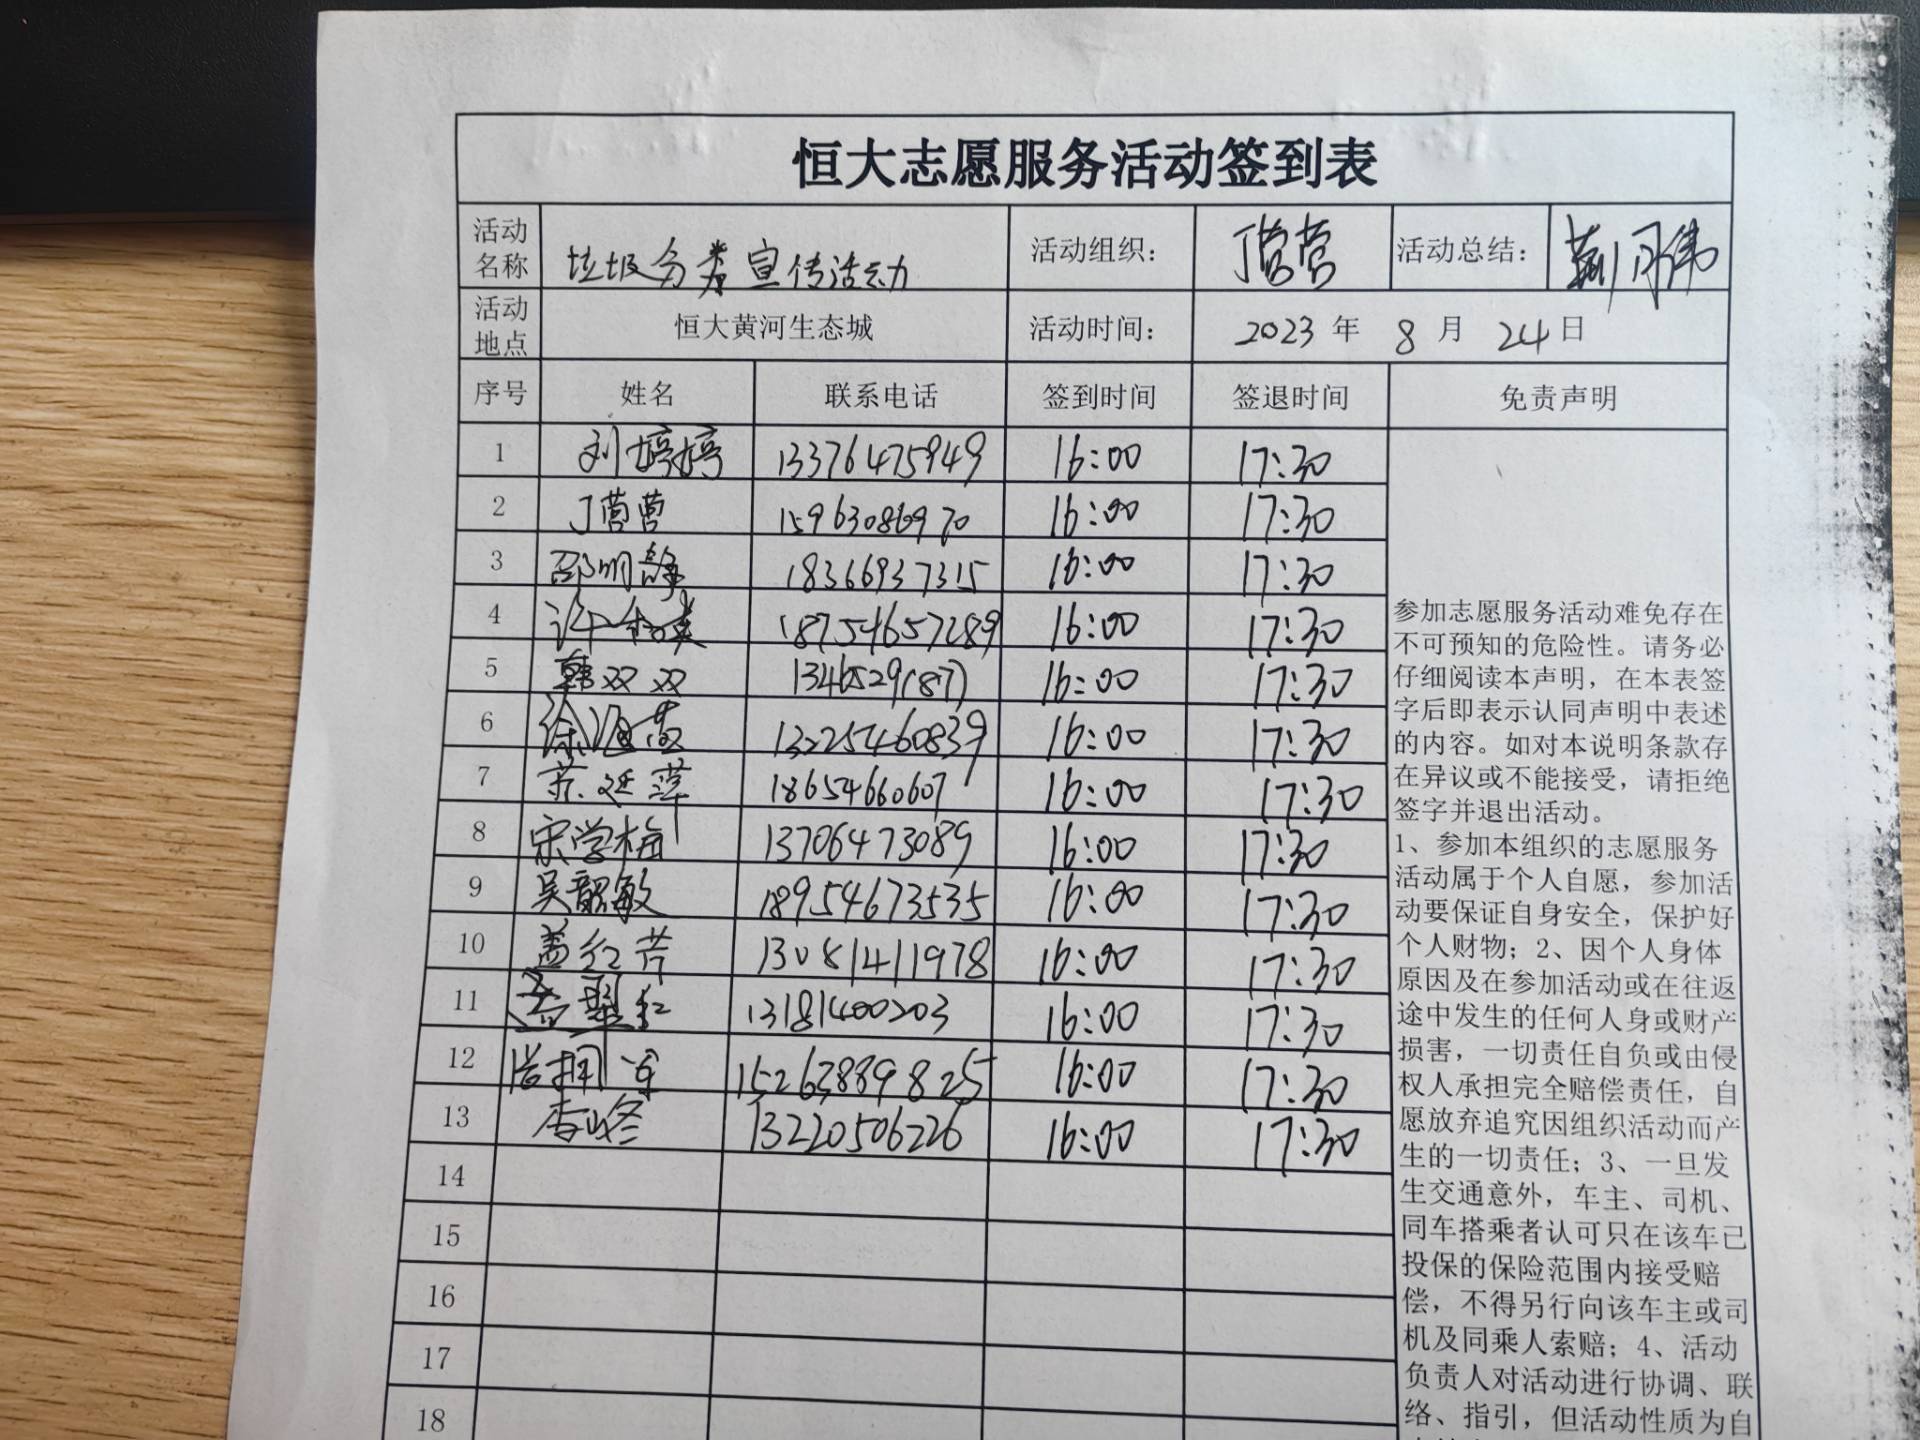 恒大志愿服务活动签到表
活动名称 垃圾分类宣传活动 活动组织： 丁营营 活动总结： 荆月伟
活动地点 恒大黄河生态城 活动时间： 2023 年 8 月 24 日
序号 姓名 联系电话 签到时间 签退时间 免责声明
1 刘婷婷 13376475949 16:00 17:30
2 丁营营 15963086970 16:00 17:30
3 邵明静 18366937315 16:00 17:30
4 许 18754657289 16:00 17:30
5 韩双双 16:00 17:30
6 徐海燕 13225460839 16:00 17:30
7 18654660607 16:00 17:30
8 宋学梅 13706473089 16:00 17:30
9 吴韶敏 18954673535 16:00 17:30
10 盖红芹 13081411978 16:00 17:30
11 红 13181400203 16:00 17:30
12 15263889825 16:00 17:30
13 李峰 13220506226 16:00 17:30
14
15
16
17
18
参加志愿服务活动难免存在
不可预知的危险性。请务必
仔细阅读本声明，在本表签
字后即表示认同声明中表述
的内容。如对本说明条款存
在异议或不能接受，请拒绝
签字并退出活动。
1、参加本组织的志愿服务
活动属于个人自愿，参加活
动要保证自身安全，保护好
个人财物；2、因个人身体
原因及在参加活动或在往返
途中发生的任何人身或财产
损害，一切责任自负或由侵
权人承担完全赔偿责任，自
愿放弃追究因组织活动而产
生的一切责任；3、一旦发
生交通意外，车主、司机、
同车搭乘者认可只在该车已
投保的保险范围内接受赔
偿，不得另行向该车主或司
机及同乘人索赔；4、活动
负责人对活动进行协调、联
络、指引，但活动性质为自